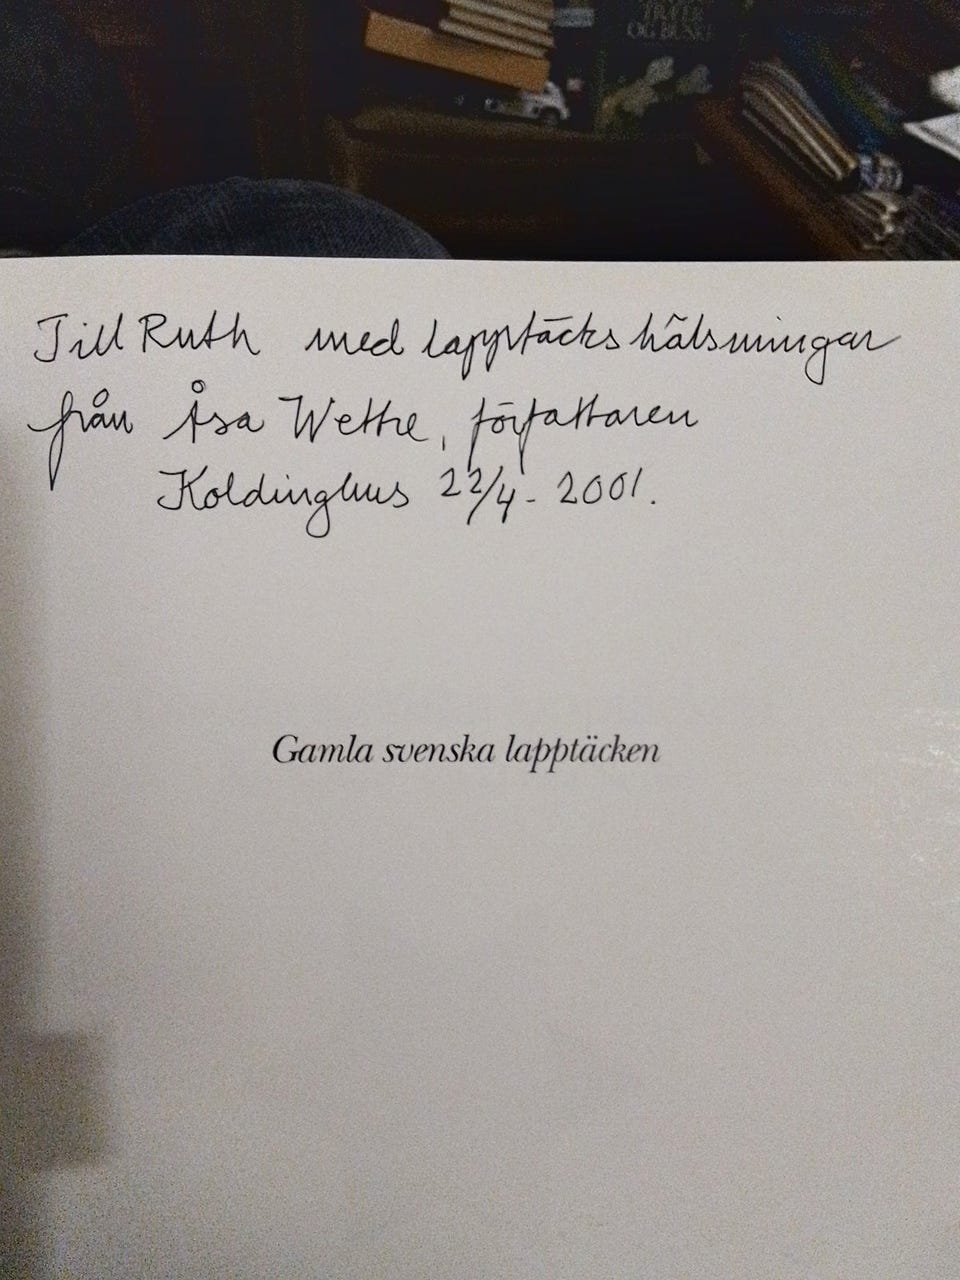 OG BUSKE
Till Ruth med lapptäckshälsningar
från Åsa Wettre, författaren
Koldinghus 22/4 - 2001.
Gamla svenska lapptäcken